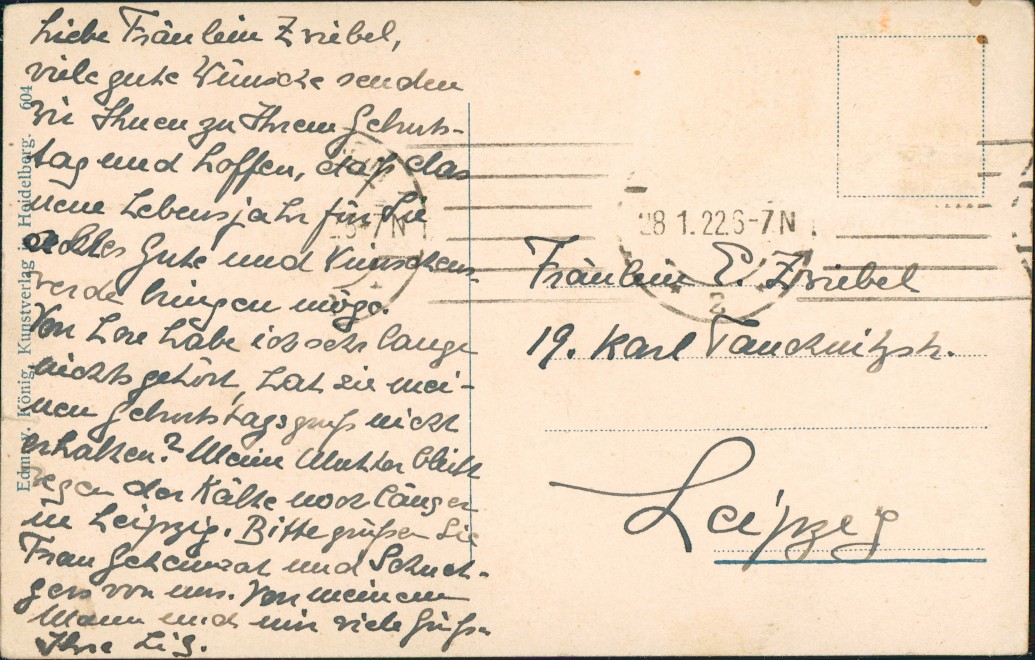 Liebe Fräulein Zwiebel,
viele gute Wünsche senden
wir Ihnen zu Ihrem Geburts-
tag und hoffen, daß das
neue Lebensjahr für Sie
Gute und
werde bringen möge.
Von Lore habe ich sehr lange
nichts gehört, hat sie mei-
nen Geburtstagsgruß nicht
erhalten? Meine Mutter bleibt
wegen der Kälte noch länger
in Leipzig. Bitte grüßen Sie
Frau Geheimrat und
von uns. Von meinem
Mann und mir viele Grüße
Ihre
Edm. v. König, Kunstverlag Heidelberg. 604
28 1.22 6-7 N
2
Fräulein E. Zwiebel
19. Karl Tauchnitzstr.
Leipzig